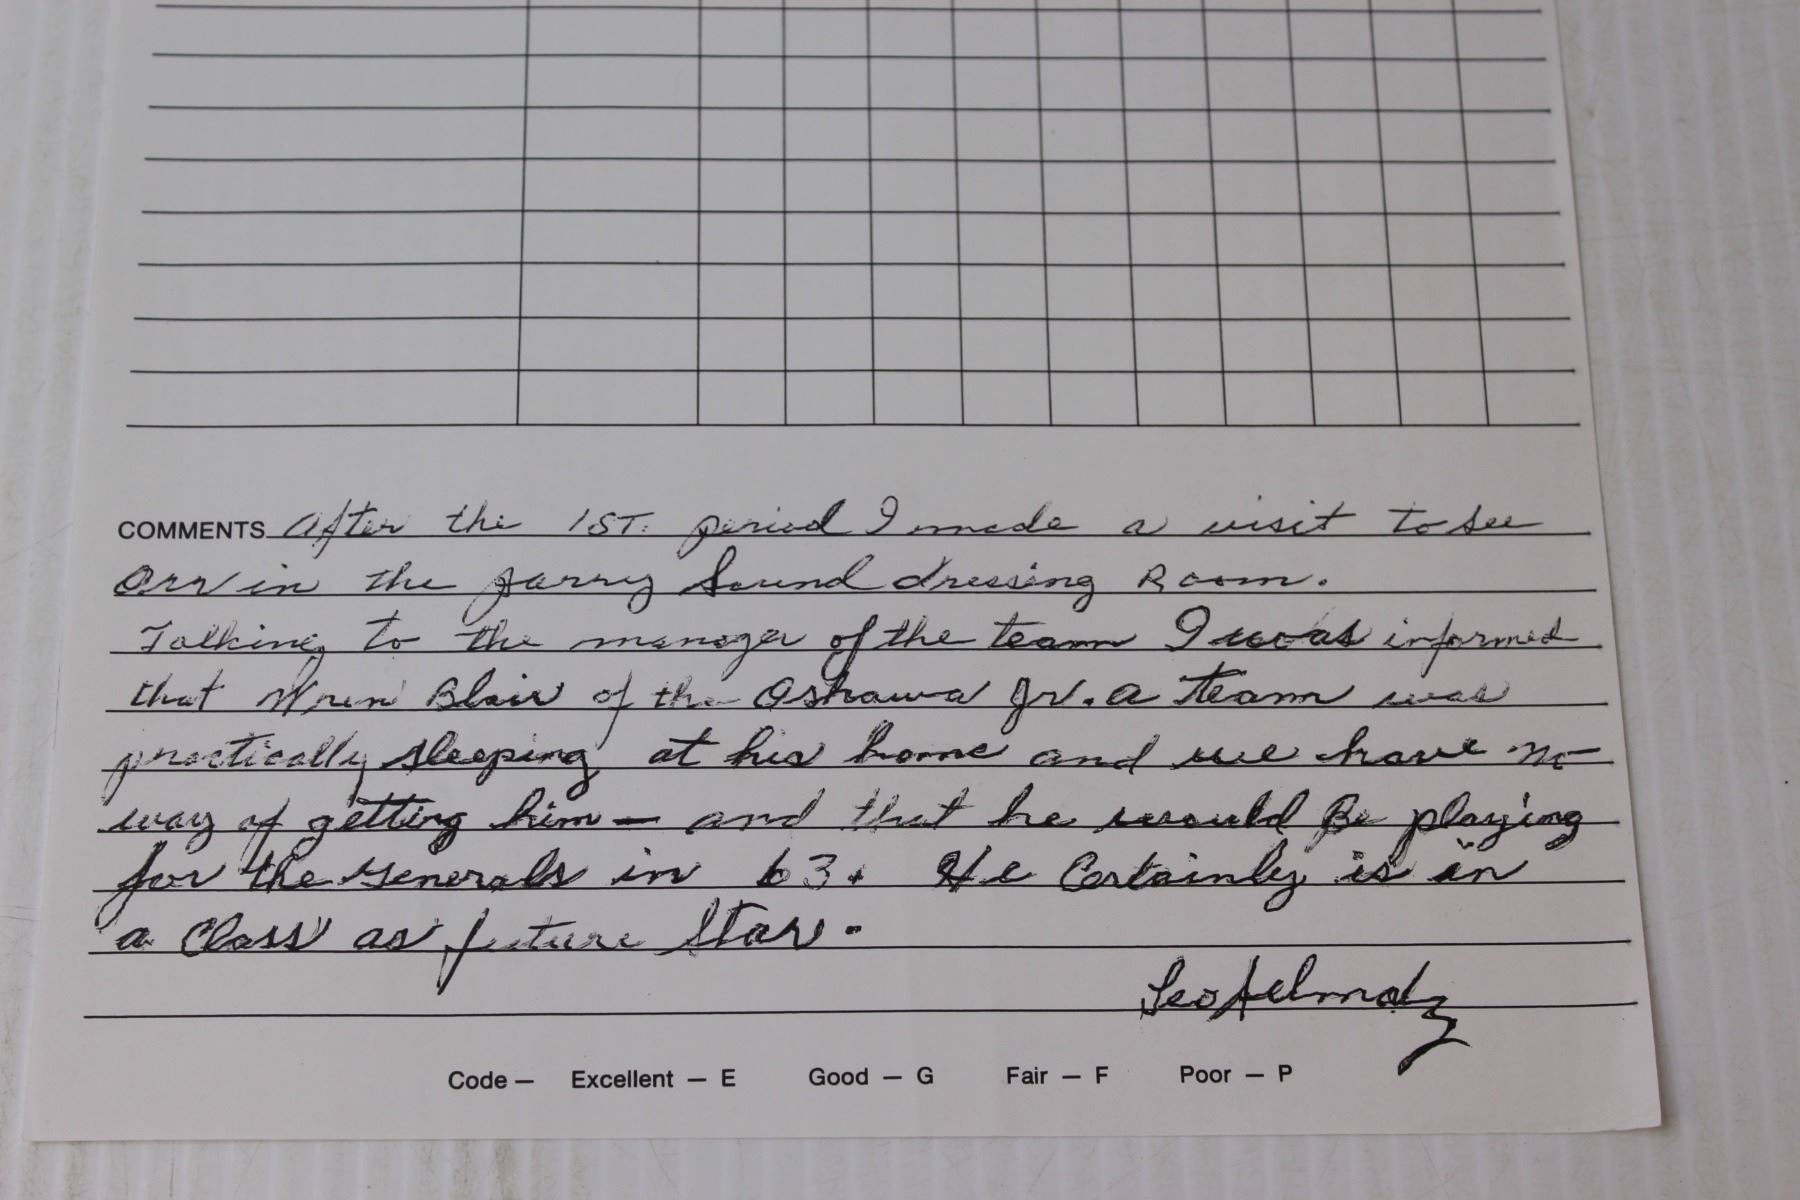 COMMENTS After the 1ST. period I made a visit to see
Orr in the parry Sound dressing Room.
Talking to the manager of the team I was informed
that Wren Blair of the Oshawa Jr. a team was
practically sleeping at his home and we have no
way of getting him — and that he would Be playing
for the Generals in 63. He Certainly is in
a Class as future Star.
Leo
Code — Excellent — E Good — G Fair — F Poor — P